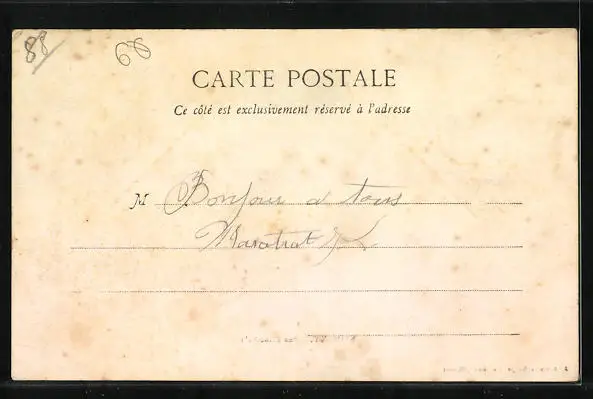 88
60
CARTE POSTALE
Ce côté est exclusivement réservé à l'adresse
M Bonjour a tous